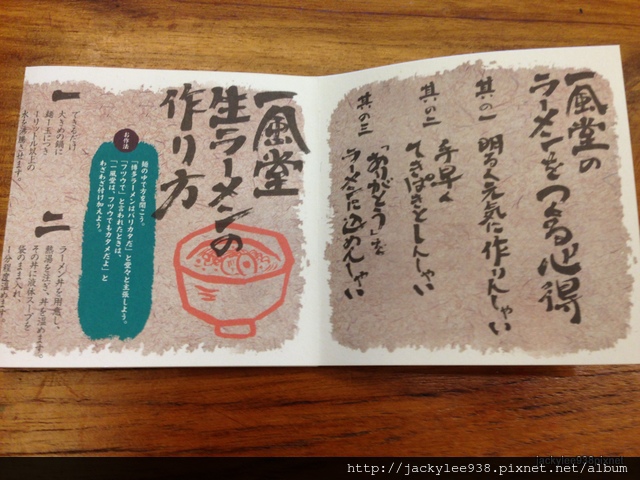 一風堂の
ラーメンをつくる心得
其の一 明るく元気に作りんしゃい
其の二 手早く
てきぱきとしんしゃい
其の三 「ありがとう」を
ラーメンに込めんしゃい
一風堂
生ラーメンの
作り方
お作法
麺のゆで方を聞こう。
「博多ラーメンはバリカタだ」と堂々と主張しよう。
「フツウで」と言われたときは、
「一風堂は、フツウでもカタメだよ」と
わざわざ付け加えよう。
一
できるだけ
大きめの鍋に
麺1玉につき
1リットル以上の
水を沸騰させます。
二
ラーメン丼を用意し、
熱湯を注ぎ、丼を温めます。
その丼に液体スープを
袋のまま入れ、
1分程度温めます。
jackylee938.pixnet
http://jackylee938.pixnet.net/album